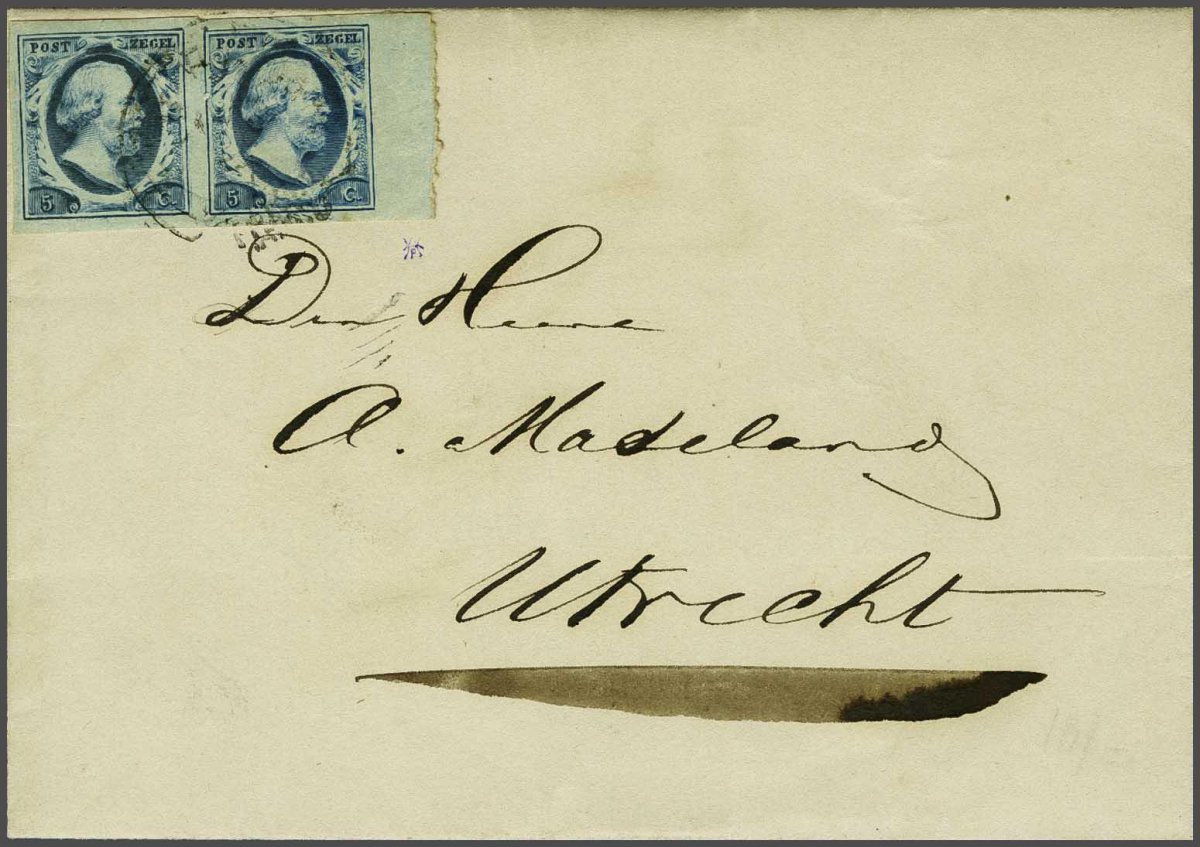 POST ZEGEL POST ZEGEL
5 C. 5 C.
Den Heere
A. Maseland
Utrecht